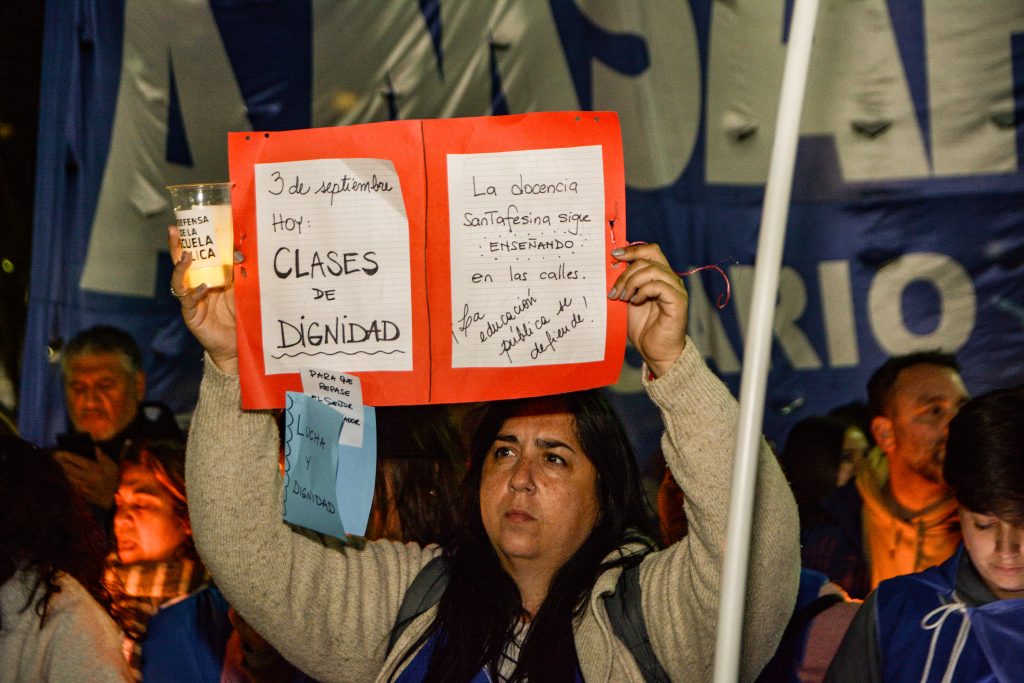 AMSAFE
ROSARIO
DEFENSA
DE LA
ESCUELA
PÚBLICA
3 de septiembre
HOY:
CLASES
DE
DIGNIDAD
La docencia
SanTafesina sigue
ENSEÑANDO
en las calles.
¡La
educación
pública se
defiende!
PARA QUE
REPASE
EL SEÑOR
LUCHA
Y
DIGNIDAD